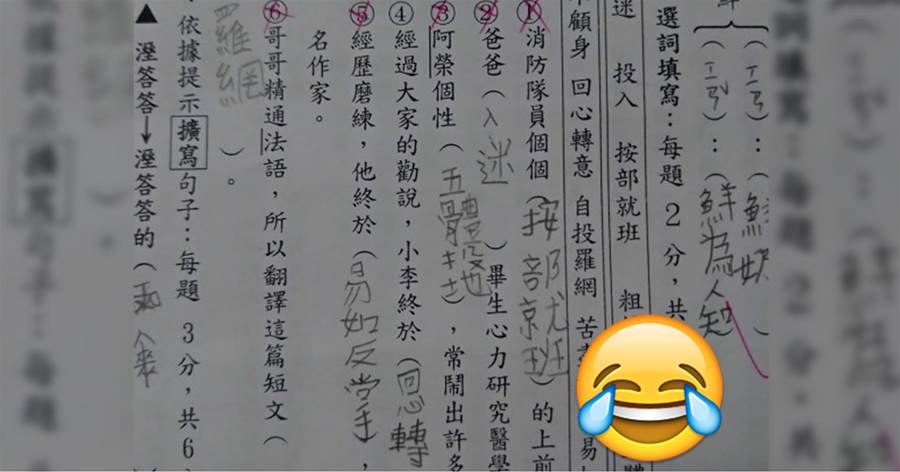 鮮
（ㄒㄧㄢ）：（鮮奶）
（ㄒㄧㄢˇ）：（鮮為人知
選詞填寫：每題2分，共
迷 投入 按部就班 粗
不顧身 回心轉意 自投羅網 苦盡 易
①消防隊員個個（按部就班）的上前
②爸爸（入迷）畢生心力研究醫學
③阿榮個性（五體投地），常鬧出許多
④經過大家的勸說，小李終於（回心轉
⑤經歷磨練，他終於（易如反掌），
名作家。
⑥哥哥精通法語，所以翻譯這篇短文（
羅網）。
依據提示擴寫句子：每題3分，共6
▲溼答答→溼答答的（雨傘